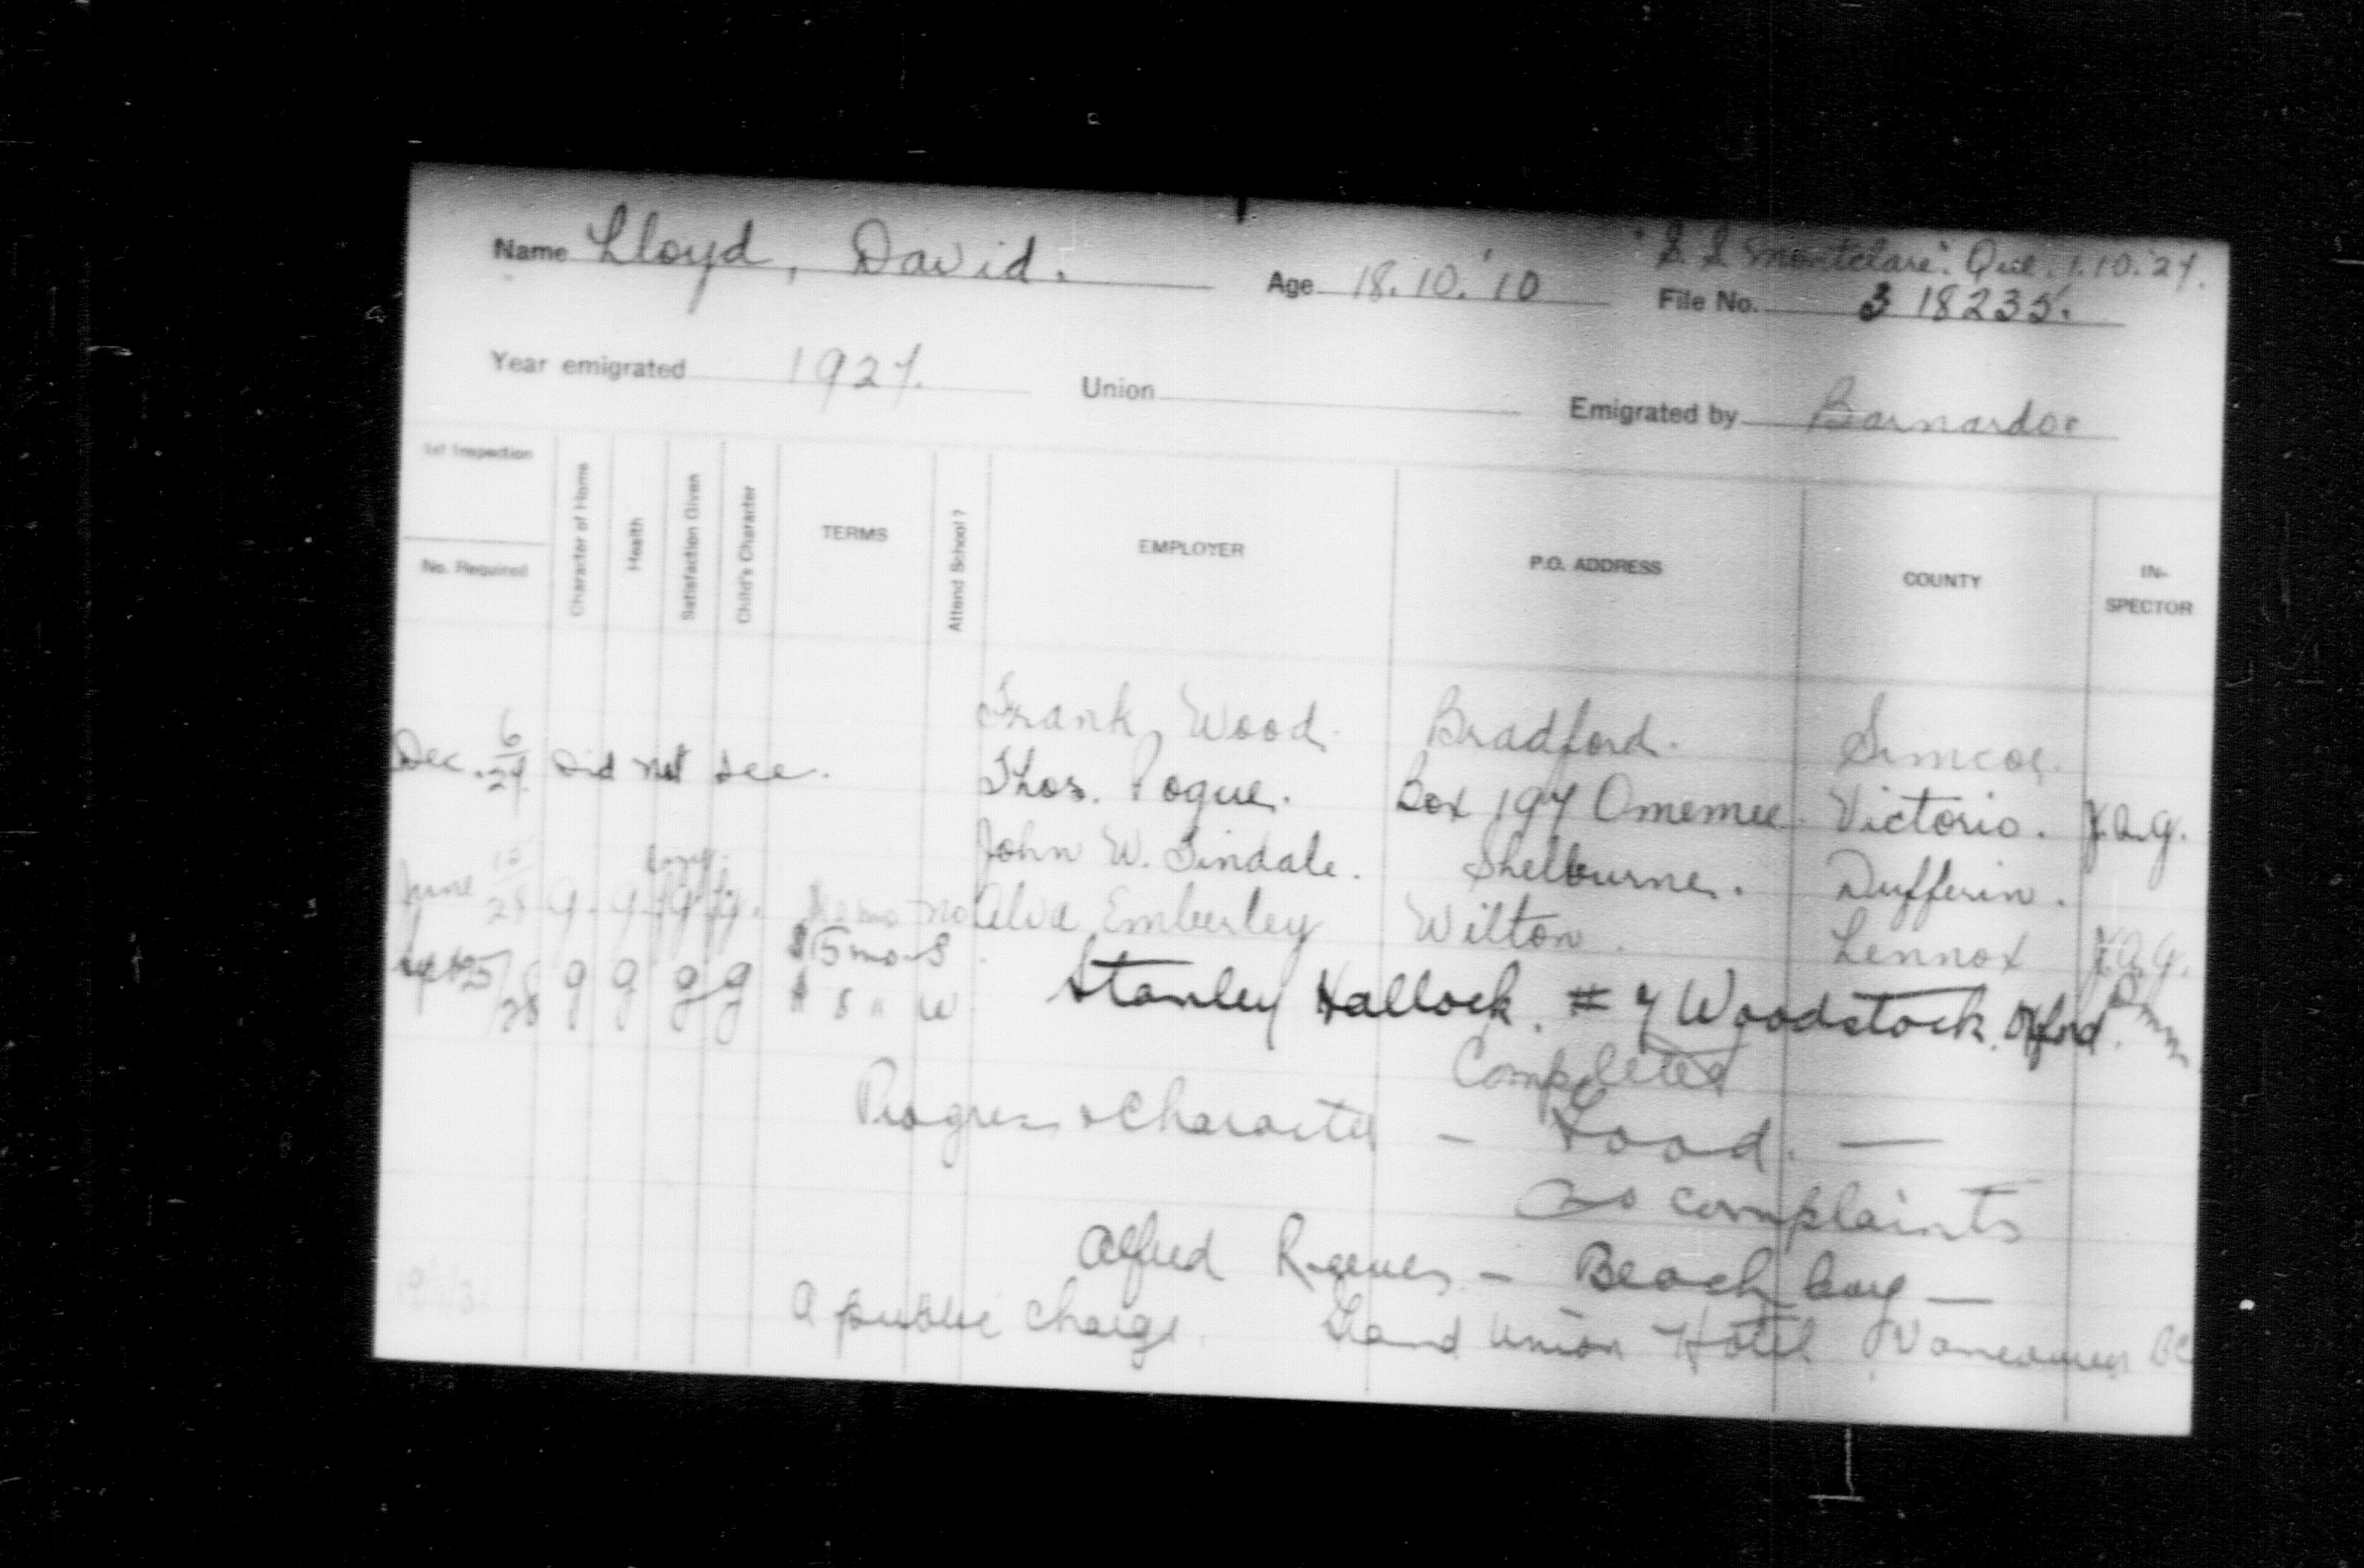 "S.S. Montclare". Que. 1.10.27.
Name Lloyd, David. Age 18.10.'10 File No. 3 18235.
Year emigrated 1927. Union Emigrated by Barnardo
1st Inspection
No. Required
Character of Home
Health
Satisfaction Given
Child's Character
TERMS
Attend School?
EMPLOYER
P.O. ADDRESS
COUNTY
IN-
SPECTOR
Frank Wood. Bradford. Simcoe.
Dec. 6/27. Did not see. Thos. Pogue. Box 197 Omemee. Victoria. J.A.G.
John W. Tindale. Shelburne. Dufferin.
June 15/28 g. g. g. no Alva Emberley Wilton. Lennox J.A.G.
$15 mo. S
Sept 25/28 g g g g 8 " W Stanley Hallock. # 7 Woodstock. Oxford.
Completed
Progress & Character - Good. —
No complaints
Alfred Reeves - Beach bay —
A public charge. Grand Union Hotel Vancouver BC